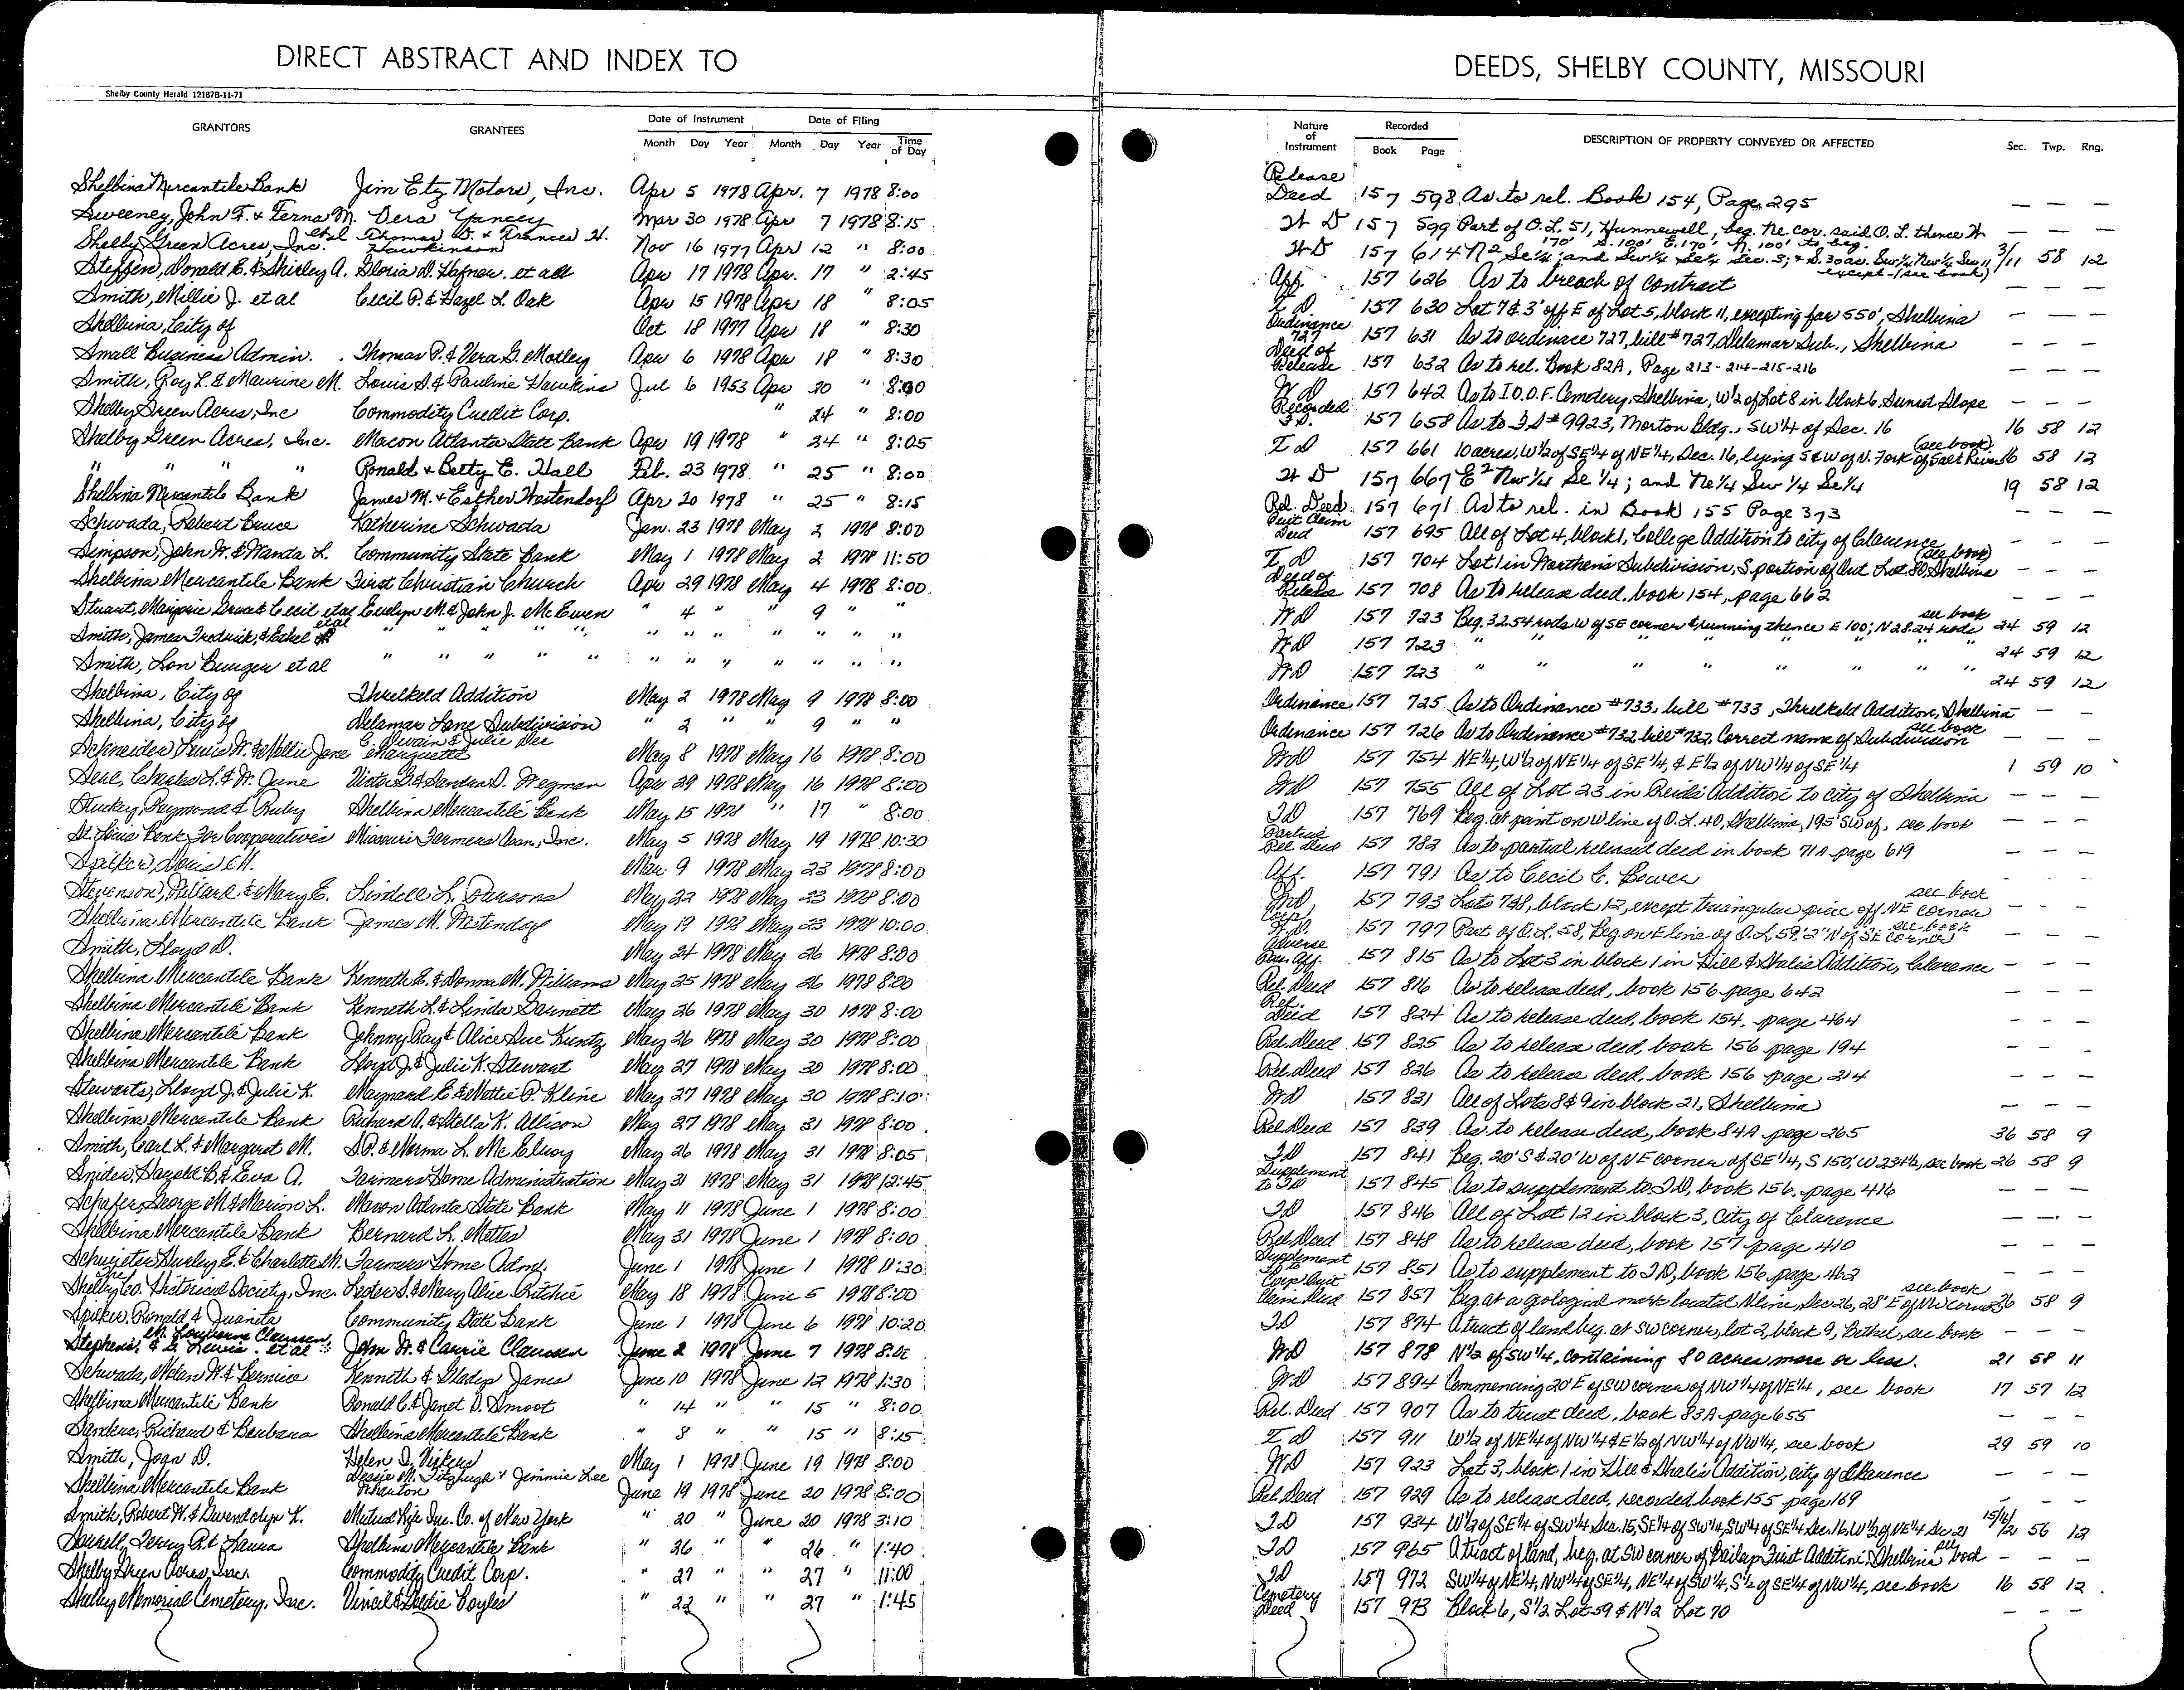 DIRECT ABSTRACT AND INDEX TO
Shelby County Herald 12187B-11-71
GRANTORS GRANTEES Date of Instrument Date of Filing
Month Day Year Month Day Year Time of Day
Shelbina Mercantile Bank Jim Etz Motors, Inc. Apr 5 1978 Apr. 7 1978 8:00
Sweeney, John F. & Ferna M. Vera Yancey Mar 30 1978 Apr 7 1978 8:15
Shelby Green Acres, Inc. etal Thomas D. & Frances H. Hawkinson Nov 16 1977 Apr 12 " 8:00
Steffen, Donald E. & Shirley A. Gloria D. Hafner, et all Apr 17 1978 Apr. 17 " 2:45
Smith, Millie J. et al Cecil P. & Hazel L. Oak Apr 15 1978 Apr 18 " 8:05
Shelbina, City of Oct 18 1977 Apr 18 " 8:30
Small Business Admin. Thomas P. & Vera G. Motley Apr 6 1978 Apr 18 " 8:30
Smith, Roy L. & Maurine M. Louis S. & Pauline Hawkins Jul 6 1953 Apr 20 " 8:00
Shelby Green Acres, Inc Commodity Credit Corp. " 24 " 8:00
Shelby Green Acres, Inc. Macon Atlanta State Bank Apr 19 1978 " 24 " 8:05
" " " " Ronald & Betty E. Hall Feb. 23 1978 " 25 " 8:00
Shelbina Mercantile Bank James M. & Esther Westendorf Apr 20 1978 " 25 " 8:15
Schwada, Robert Bruce Katherine Schwada Jan. 23 1978 May 2 1978 8:00
Simpson, John W. & Wanda L. Community State Bank May 1 1978 May 2 1978 11:50
Shelbina Mercantile Bank First Christian Church Apr 29 1978 May 4 1978 8:00
Stuart, Marjorie Grace & Cecil etal Evelyn M. & John J. McEwen " 4 " " 9 " "
Smith, James Fredrick, & Ethel etal " " " " " " " " " " " "
Smith, Lon Bunger et al " " " " " " " " " " " "
Shelbina, City of Threlkeld Addition May 2 1978 May 9 1978 8:00
Shelbina, City of Delamar Lane Subdivision " 2 " " 9 " "
Schneider, Louis W. & Mollie Jane C. Dwain & Julie Dee Marquette May 8 1978 May 16 1978 8:00
Seie, Charles L. & W. June Victor G. & Sandra D. Wegman Apr 29 1978 May 16 1978 8:20
Stuckey, Raymond & Ruby Shelbina Mercantile Bank May 15 1978 " 17 " 8:00
St. Louis Bank For Cooperatives Missouri Farmers Assn., Inc. May 5 1978 May 19 1978 10:30
Spilker, Doris M. Mar 9 1978 May 23 1978 8:00
Stevenson, Willard & Mary E. Lindell L. Parsons May 22 1978 May 23 1978 8:00
Shelbina Mercantile Bank James M. Westendorf May 19 1978 May 23 1978 10:00
Smith, Lloyd D. May 24 1978 May 26 1978 8:00
Shelbina Mercantile Bank Kenneth E. & Donna M. Williams May 25 1978 May 26 1978 8:20
Shelbina Mercantile Bank Kenneth L. & Linda Darnitt May 26 1978 May 30 1978 8:00
Shelbina Mercantile Bank Johnny Ray & Alice Sue Kuntz May 26 1978 May 30 1978 8:00
Shelbina Mercantile Bank Lloyd J. & Julie K. Stewart May 27 1978 May 30 1978 8:00
Stewarts, Lloyd J. & Julie K. Maynard E. & Nettie P. Kline May 27 1978 May 30 1978 8:10
Shelbina Mercantile Bank Richard A. & Stella K. Allison May 27 1978 May 31 1978 8:00
Smith, Carl L. & Margaret M. S.P. & Norma L. McElroy May 26 1978 May 31 1978 8:05
Snider, Harold B. & Eva A. Farmers Home Administration May 31 1978 May 31 1978 12:45
Schafer, George M. & Marion L. Macon Atlanta State Bank May 11 1978 June 1 1978 8:00
Shelbina Mercantile Bank Bernard L. Mettes May 31 1978 June 1 1978 8:00
Schwieter, Hurley E. & Charlotte M. Farmers Home Adms. June 1 1978 June 1 1978 11:30
The Shelby Co. Historical Society, Inc. Lester S. & Mary Alice Ritchie May 18 1978 June 5 1978 8:00
Spilker, Ronald & Juanita Community State Bank June 1 1978 June 6 1978 10:20
Stephens, & G. Lewis. et al M. Louverne Claussen, John W. & Carrie Claussen June 2 1978 June 7 1978 8:05
Schwada, Nolan W. & Bernice Kenneth & Gladys Janes June 10 1978 June 12 1978 1:30
Shelbina Mercantile Bank Ronald C. & Janet D. Smoot " 14 " " 15 " 8:00
Sanders, Richard & Barbara Shelbina Mercantile Bank " 8 " " 15 " 8:15
Smith, Joan D. Helen D. Vickers May 1 1978 June 19 1978 8:00
Shelbina Mercantile Bank Dessie M. Fitzhugh & Jimmie Lee Wharton June 19 1978 June 20 1978 8:00
Smith, Robert W. & Gwendolyn K. Mutual Life Ins. Co. of New York " 20 " June 20 1978 3:10
Sarnell, Terry R. & Laura Shelbina Mercantile Bank " 26 " " 26 " 1:40
Shelby Green Acres, Inc. Commodity Credit Corp. " 27 " " 27 " 11:00
Shelby Memorial Cemetery, Inc. Vincil & Goldie Boyles " 22 " " 27 " 1:45
DEEDS, SHELBY COUNTY, MISSOURI
Nature of Instrument Recorded DESCRIPTION OF PROPERTY CONVEYED OR AFFECTED Sec. Twp. Rng.
Book Page
Release Deed 157 598 As to rel. Book 154, Page 295 — — —
W D 157 599 Part of O.L. 51, Hunnewell, beg. Ne. cor. said O.L. thence W 170' S. 100' E. 170' N. 100' to beg. — — —
W D 157 614 N2 Se 1/4; and Sw 1/4 Se 1/4 Sec. 3; & S. 30 ac. Sw 1/4 Nw 1/4 Sec 11 except-(see book) 3/11 58 12
Aff. 157 626 As to breach of contract — — —
T D 157 630 Lot 7 & 3' off E of Lot 5, block 11, excepting far S50', Shelbina — — —
Ordinance 727 157 631 As to ordinace 727, bill #727, Delamar Sub., Shelbina — — —
Deed of Release 157 632 As to rel. Book 82A, Page 213-214-215-216 — — —
W D 157 642 As to I.O.O.F. Cemetery, Shelbina, W1/2 of Lot 8 in block 6, Sunset Slope
Recorded F.S. 157 658 As to F.S #9923, Morton Bldg., SW1/4 of Sec. 16 16 58 12
T D 157 661 10 acres, W1/2 of SE1/4 of NE1/4, Sec. 16, lying S & W of N. Fork of Salt River (see book) 16 58 12
W D 157 667 E2 Nw 1/4 Se 1/4; and Ne 1/4 Sw 1/4 Se 1/4 19 58 12
Rel. Deed 157 671 As to rel. in Book 155 Page 373 — — —
Quit Claim Deed 157 695 All of Lot 4, block 1, College Addition to city of Clarence — — —
T D 157 704 Lot 1 in Northern's Subdivision, S. portion of Out Lot 80, Shelbina (see book) — — —
Deed of Release 157 708 As to release deed, book 154, page 662 — — —
WD 157 723 Beg. 32.54 rods W of SE corner & running thence E 100; N 28.24 rods see book 24 59 12
WD 157 723 " " " " " " " 24 59 12
WD 157 723 " " " " " " " 24 59 12
Ordinance 157 725 As to Ordinance #733, bill #733, Threlkeld Addition, Shelbina — —
Ordinance 157 726 As to Ordinance #732 bill #732, Correct name of Subdivision see book — —
WD 157 754 NE1/4, W1/2 of NE1/4 of SE1/4, & E1/2 of NW1/4 of SE1/4 1 59 10
WD 157 755 All of Lot 23 in Reid's Addition to city of Shelbina — — —
TD 157 769 Beg. at point on W line of O.L. 40, Shelbina, 195' SW of, see book — — —
Partial Rel Deed 157 782 As to partial released deed in book 71A page 619
Aff. 157 791 As to Cecil C. Bower — — —
WD 157 793 Lots 7&8, block 12, except triangular piece off NE corner see book — — —
Corp. W.D. 157 797 Part of O.L. 58, Beg on E line of O.L. 59, 2" N of SE corner see book — — —
Adverse Pos. Aff. 157 815 As to Lot 3 in block 1 in Hill & Shale's Addition, Clarence — — —
Rel. Deed 157 816 As to release deed, book 156 page 642 — — —
Rel. Deed 157 824 As to release deed, book 154, page 464 — — —
Rel. Deed 157 825 As to release deed, book 156 page 194 — — —
Rel. Deed 157 826 As to release deed, book 156 page 214 — — —
WD 157 831 All of Lots 8 & 9 in block 21, Shelbina — — —
Rel. Deed 157 839 As to release deed, book 84A page 265 36 58 9
TD 157 841 Beg. 20' S & 20' W of NE corner of SE1/4, S 150', W 234 1/2, see book 26 58 9
Supplement to TD 157 845 As to supplement to TD, book 156, page 416 — — —
TD 157 846 All of Lot 12 in block 3, City of Clarence — — —
Rel. Deed 157 848 As to release deed, book 157 page 410 — — —
Supplement to TD 157 851 As to supplement to TD, book 156, page 462 — — —
Corp Quit Claim Deed 157 857 Beg. at a gological mark located N line, Sec 26, 28' E of NW corner see book 36 58 9
TD 157 874 A tract of land beg. at SW corner, lot 2, block 9, Bethel, see book — — —
WD 157 878 N1/2 of SW1/4, containing 80 acres more or less. 21 58 11
WD 157 894 Commencing 20' E of SW corner of NW1/4 of NE1/4, see book 17 57 12
Rel. Deed 157 907 As to trust deed, book 83A page 655 — — —
T D 157 911 W1/2 of NE1/4 of NW1/4 & E1/2 of NW1/4 of NW1/4, see book 29 59 10
WD 157 923 Lot 3, block 1 in Hill & Shale's Addition, city of Clarence — — —
Rel. Deed 157 929 As to release deed, recorded book 155 page 169 — — —
TD 157 934 W1/2 of SE1/4 of SW1/4 Sec. 15, SE1/4 of SW1/4, SW1/4 of SE1/4, Sec. 16, W1/2 of NE1/4 Sec 21 15/16/21 56 12
TD 157 965 A tract of land, beg. at SW corner of Bailey's First Addition, Shelbina see book — — —
TD 157 972 SW1/4 of NE1/4, NW1/4 of SE1/4, NE1/4 of SW1/4, S1/2 of SE1/4 of NW1/4, see book 16 58 12
Cemetery Deed 157 973 Block 6, S1/2 Lot 59 & N1/2 Lot 70 — — —